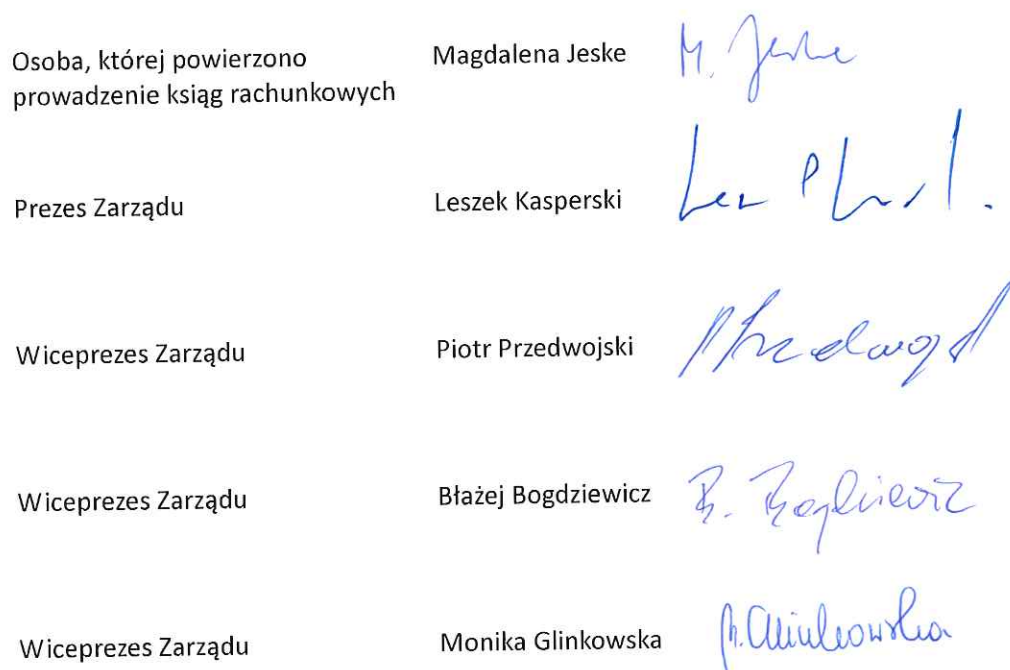 Osoba, której powierzono
prowadzenie ksiąg rachunkowych
Magdalena Jeske
M. Jeske
Prezes Zarządu
Leszek Kasperski
Wiceprezes Zarządu
Piotr Przedwojski
Wiceprezes Zarządu
Błażej Bogdziewicz
B. Bogdziewicz
Wiceprezes Zarządu
Monika Glinkowska
M. Glinkowska